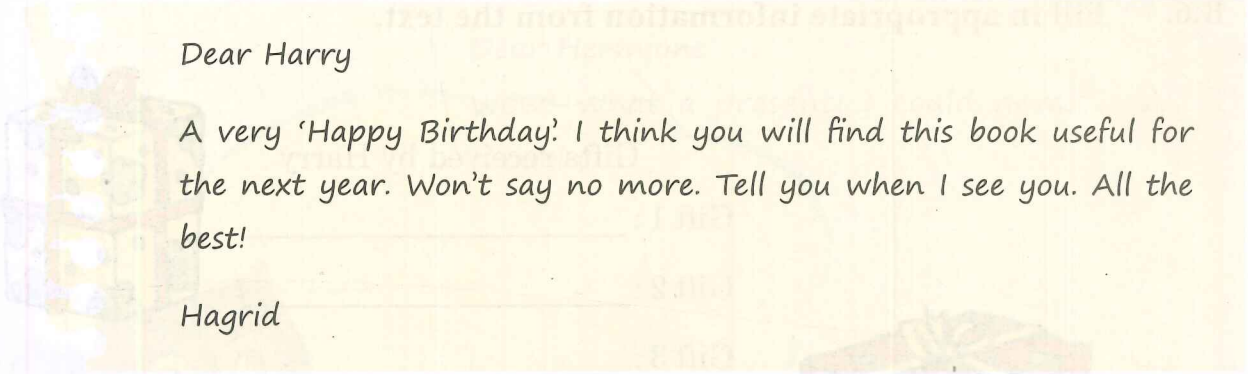 Dear Harry
A very ‘Happy Birthday’! I think you will find this book useful for
the next year. Won’t say no more. Tell you when I see you. All the
best!
Hagrid